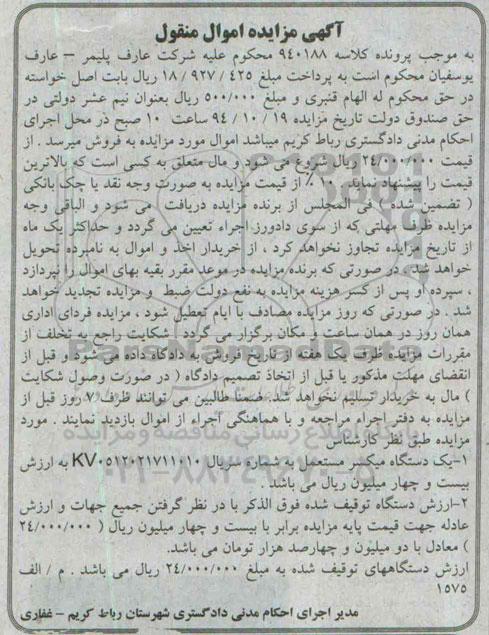 آگهی مزایده اموال منقول
به موجب پرونده کلاسه ۹۴۰۱۸۸ محکوم علیه شرکت عارف پلیمر – عارف
یوسفیان محکوم است به پرداخت مبلغ ۴۲۵ / ۹۲۷ / ۱۸ ریال بابت اصل خواسته
در حق محکوم له الهام قنبری و مبلغ ۵۰۰/۰۰۰ ریال بعنوان نیم عشر دولتی در
حق صندوق دولت تاریخ مزایده ۱۹ / ۱۰ / ۹۴ ساعت ۱۰ صبح در محل اجرای
احکام مدنی دادگستری رباط کریم میباشد اموال مورد مزایده به فروش میرسد . از
قیمت ۲۴/۰۰۰/۰۰۰ ریال شروع می شود و مال متعلق به کسی است که بالاترین
قیمت را پیشنهاد نماید . ۱۰٪ از قیمت مزایده به صورت وجه نقد یا چک بانکی
( تضمین شده ) فی المجلس از برنده مزایده دریافت می شود و الباقی وجه
مزایده ظرف مهلتی که از سوی دادورز اجراء تعیین می گردد و حداکثر یک ماه
از تاریخ مزایده تجاوز نخواهد کرد ، از خریدار اخذ و اموال به نامبرده تحویل
خواهد شد . در صورتی که برنده مزایده در موعد مقرر بقیه بهای اموال را نپردازد
، سپرده او پس از کسر هزینه مزایده به نفع دولت ضبط و مزایده تجدید خواهد
شد . در صورتی که روز مزایده مصادف با ایام تعطیل شود ، مزایده فردای اداری
همان روز در همان ساعت و مکان برگزار می گردد . شکایت راجع به تخلف از
مقررات مزایده ظرف یک هفته از تاریخ فروش به دادگاه داده می شود و قبل از
انقضای مهلت مذکور یا قبل از اتخاذ تصمیم دادگاه ( در صورت وصول شکایت
) مال به خریدار تسلیم نخواهد شد. ضمنا طالبین می توانند ظرف ۷ روز قبل از
مزایده به دفتر اجراء مراجعه و با هماهنگی اجراء از اموال بازدید نمایند . مورد
مزایده طبق نظر کارشناس
۱-یک دستگاه میکسر مستعمل به شماره سریال KV۰۵۱۲۰۲۱۷۱۱۰۱۰ به ارزش
بیست و چهار میلیون ریال می باشد .
۲-ارزش دستگاه توقیف شده فوق الذکر با در نظر گرفتن جمیع جهات و ارزش
عادله جهت قیمت پایه مزایده برابر با بیست و چهار میلیون ریال ( ۲۴/۰۰۰/۰۰۰
) معادل با دو میلیون و چهارصد هزار تومان می باشد.
ارزش دستگاههای توقیف شده به مبلغ ۲۴/۰۰۰/۰۰۰ ریال می باشد . م / الف
۱۵۷۵
مدیر اجرای احکام مدنی دادگستری شهرستان رباط کریم – غفاری